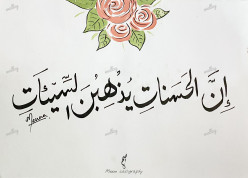 إِنَّ الحَسَنَاتِ يُذْهِبْنَ السَّيِّئَاتِ
Mona calligraphy